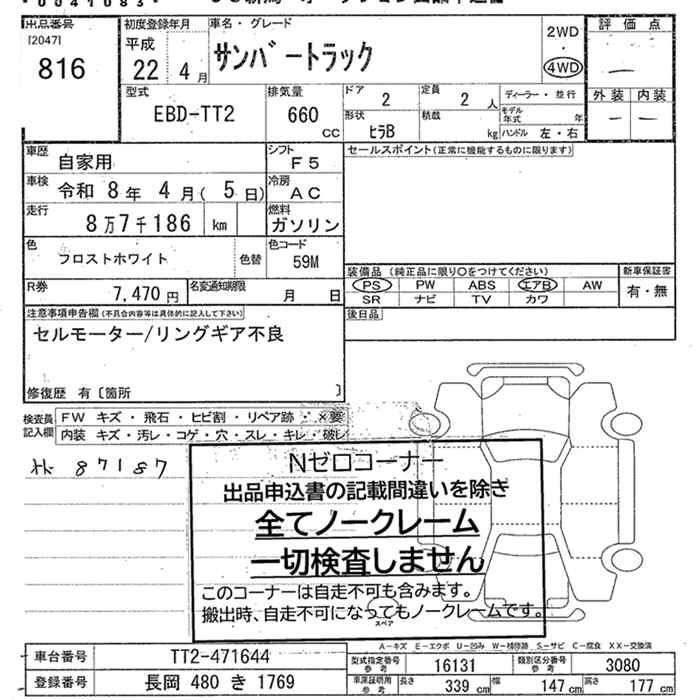 0041083
出品番号
[2047]
816
初度登録年月
平成
22 4 月
車名・グレード
サンバートラック
2WD
・
4WD
評 価 点
—
外装 内装
— —
型式
EBD-TT2
排気量
660
CC
ドア
2
定員
2 人
形状
ヒラB
積載
kg
ディーラー・並行
モデル年式 年
ハンドル 左・右
車歴
自家用
シフト
F5
セールスポイント(正常に機能するものに限ります)
車検
令和 8 年 4 月( 5 日)
冷房
AC
走行
8万7千186 km
燃料
ガソリン
色
フロストホワイト
色替
色コード
59M
装備品 (純正品に限り○をつけてください)
PS PW ABS エアB AW
SR ナビ TV カワ
新車保証書
有・無
R券
7,470 円
名変通知期限
月 日
後日品
注意事項申告欄(不具合内容等は具体的に記入して下さい)
セルモーター/リングギア不良
修復歴 有〔箇所 〕
検査員記入欄
FW キズ・飛石・ヒビ割・リペア跡・×要
内装 キズ・汚レ・コゲ・穴・スレ・キレ・破レ
87187
Nゼロコーナー
出品申込書の記載間違いを除き
全てノークレーム
一切検査しません
このコーナーは自走不可も含みます。
搬出時、自走不可になってもノークレームです。
スペア
A-キズ E-エクボ U-凹み W-補修跡 S-サビ C-腐食 XX-交換済
車台番号
TT2-471644
型式指定番号
参考
16131
類別区分番号
参考
3080
登録番号
長岡 480 き 1769
車庫証明用
参考
長さ 339 cm
幅 147 cm
高さ 177 cm